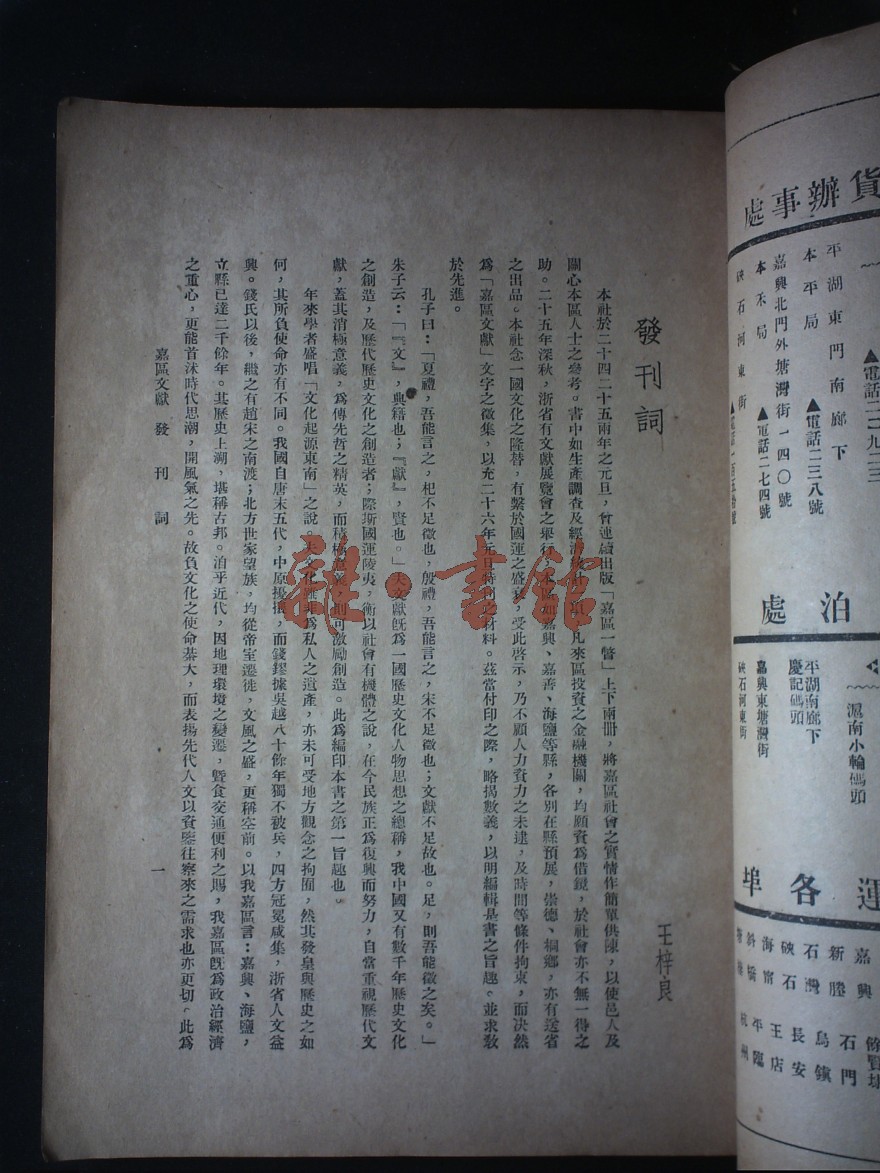 發刊詞
王梓良
本社於二十四二十五兩年之元旦，曾連續出版「嘉區一瞥」上下兩冊，將嘉區社會之實情作簡單供陳，以使邑人及
關心本區人士之參考。書中如生產調查及經濟統計
凡來區投資之金融機關，均願資為借鏡，於社會亦不無一得之
助。二十五年深秋，浙省有文獻展覽會之舉行，本區如嘉興、嘉善、海鹽等縣，各別在縣預展，崇德、桐鄉，亦有送省
之出品。本社念一國文化之隆替，有繫於國運之盛衰，受此啓示，乃不顧人力資力之未逮，及時間等條件拘束，而決然
為「嘉區文獻」文字之徵集，以充二十六年元旦特刊之材料。茲當付印之際，略揭數義，以明編輯是書之旨趣。並求教
於先進。
孔子曰：「夏禮，吾能言之，杞不足徵也，殷禮，吾能言之，宋不足徵也；文獻不足故也。足，則吾能徵之矣。」
朱子云：「『文』，典籍也；『獻』，賢也。」夫文獻旣為一國歷史文化人物思想之總稱，我中國又有數千年歷史文化
之創造，及歷代歷史文化之創造者；際斯國運陵夷，衡以社會有機體之說，在今民族正為復興而努力，自當重視歷代文
獻，蓋其消極意義，為傳先哲之精英，而積極意義，則可激勵創造。此為編印本書之第一旨趣也。
年來學者盛唱「文化起源東南」之說。夫文化雖非為私人之遺產，亦未可受地方觀念之拘囿，然其發皇與歷史之如
何，其所負使命亦有不同。我國自唐末五代，中原擾攘，而錢鏐據吳越八十餘年獨不被兵，四方冠冕咸集，浙省人文益
興。錢氏以後，繼之有趙宋之南渡；北方世家望族，均從帝室遷徙，文風之盛，更稱空前。以我嘉區言：嘉興、海鹽，
立縣已達二千餘年。其歷史上溯，堪稱古邦。洎乎近代，因地理環境之變遷，曁食交通便利之賜，我嘉區旣為政治經濟
之重心，更能首沐時代思潮，開風氣之先。故負文化之使命綦大，而表揚先代人文以資鑒往察來之需求也亦更切。此為
嘉區文獻 發刊詞
一
雜·書館
貨辦事處
▲電話二二九二三
平湖東門南廊下
本平局
▲電話二三八號
嘉興北門外塘灣街一四〇號
本禾局
▲電話二七四號
硤石河東街
泊處
滬南小輪碼頭
平湖南廊下
慶記碼頭
嘉興東塘灣街
硤石河東街
運各埠
嘉興
新塍 石門
石灣 烏鎮
硤石 長安
海甯 王店
斜橋 平 臨
杭州